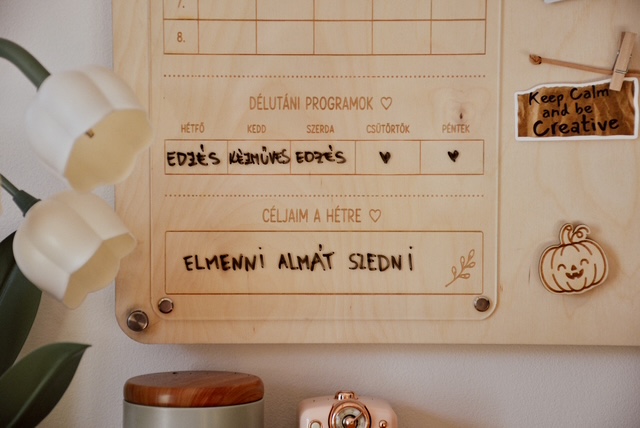 7.
8.
DÉLUTÁNI PROGRAMOK ♡
HÉTFŐ KEDD SZERDA CSÜTÖRTÖK PÉNTEK
EDZÉS KÉZMŰVES EDZÉS ♥ ♥
CÉLJAIM A HÉTRE ♡
ELMENNI ALMÁT SZEDNI
Keep Calm
and be
Creative